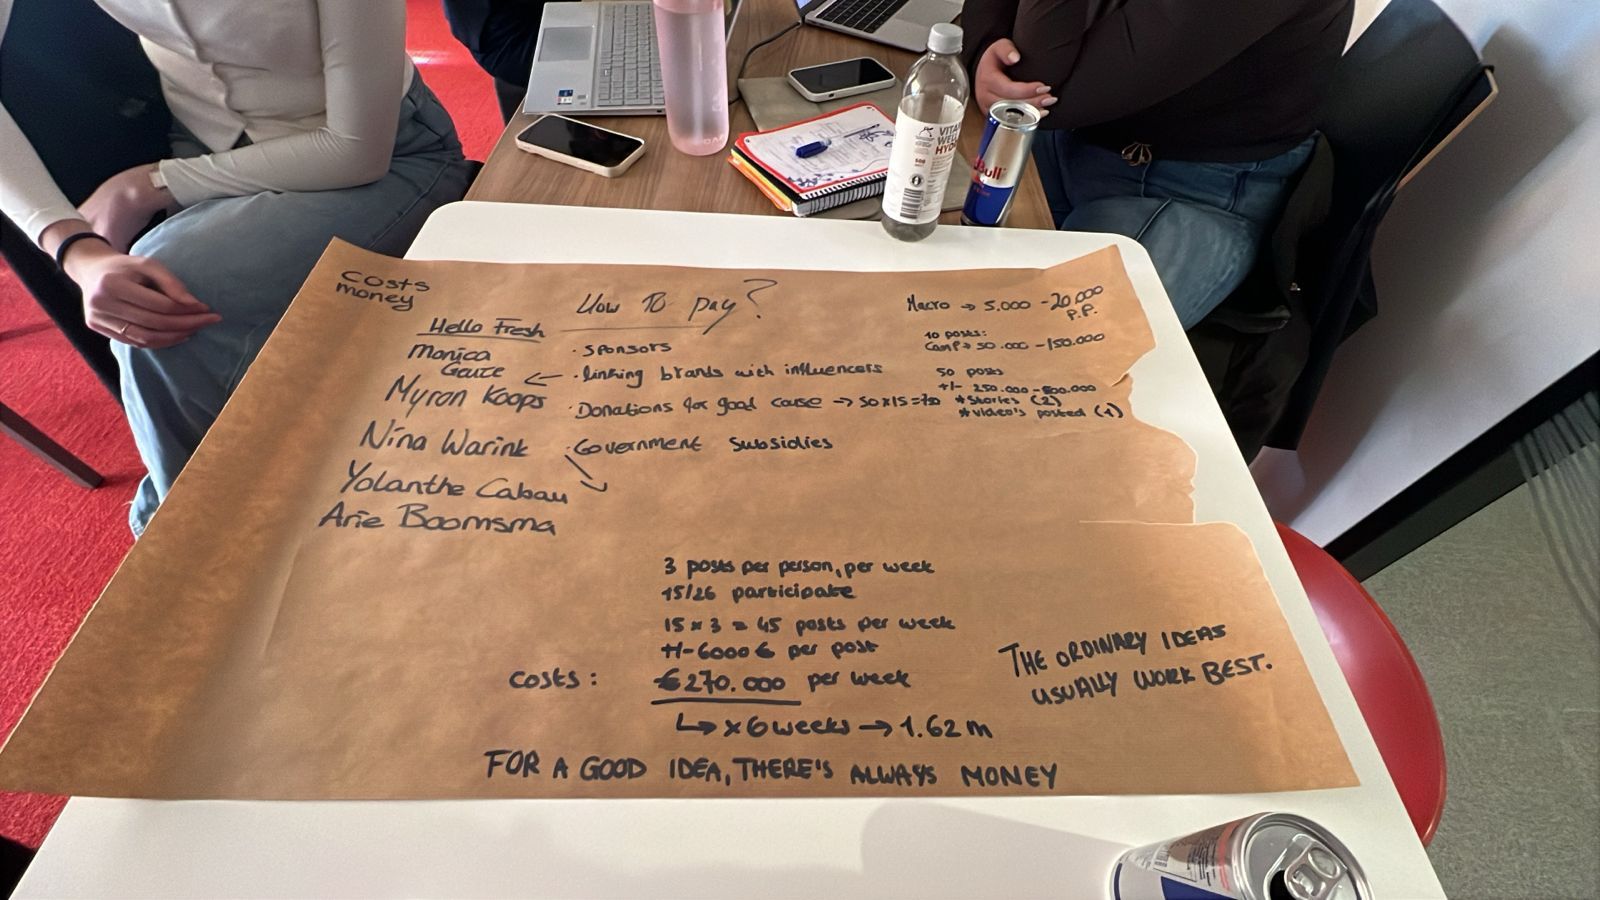 Costs
money
How to pay?
Hello Fresh
Monica
Geuze
Myron Koops
Nina Warink
Yolanthe Cabau
Arie Boomsma
· Sponsors
· linking brands with influencers
· Donations for good cause → 50x15=750
· Government subsidies
Macro → 5.000 - 20.000
P.P.
10 posts:
50.000 - 150.000
50 posts
+/- 250.000 - 500.000
* Stories (2)
* video's posted (1)
3 posts per person, per week
15/26 participate
15 x 3 = 45 posts per week
+/- 6000 € per post
costs: €270.000 per week
↳ x 6 weeks → 1.62 m
THE ORDINARY IDEAS
USUALLY WORK BEST.
FOR A GOOD IDEA, THERE'S ALWAYS MONEY
VITAMIN
WELL
HYD
Red Bull